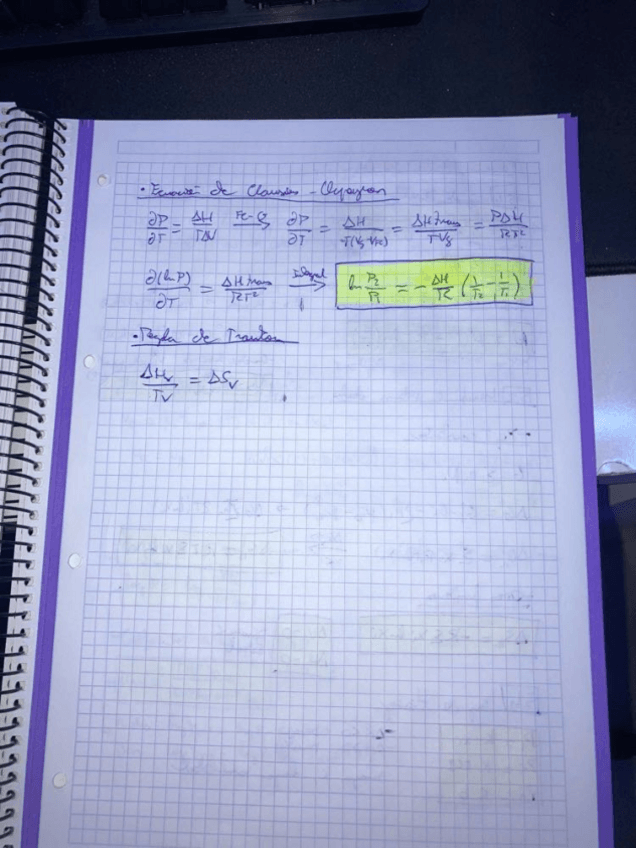 · Ecuación de Clausius - Clapeyron
∂P/∂T = ΔH/TΔV Fc-G → ∂P/∂T = ΔH/T(Vg-Vfc) = ΔH Trans/T·Vg = PΔH/RT²
∂(ln P)/∂T = ΔH Trans/RT² Integral → ln P₂/P₁ = - ΔH/R (1/T₂ - 1/T₁)
· Regla de Trouton
ΔHv/Tv = ΔSv